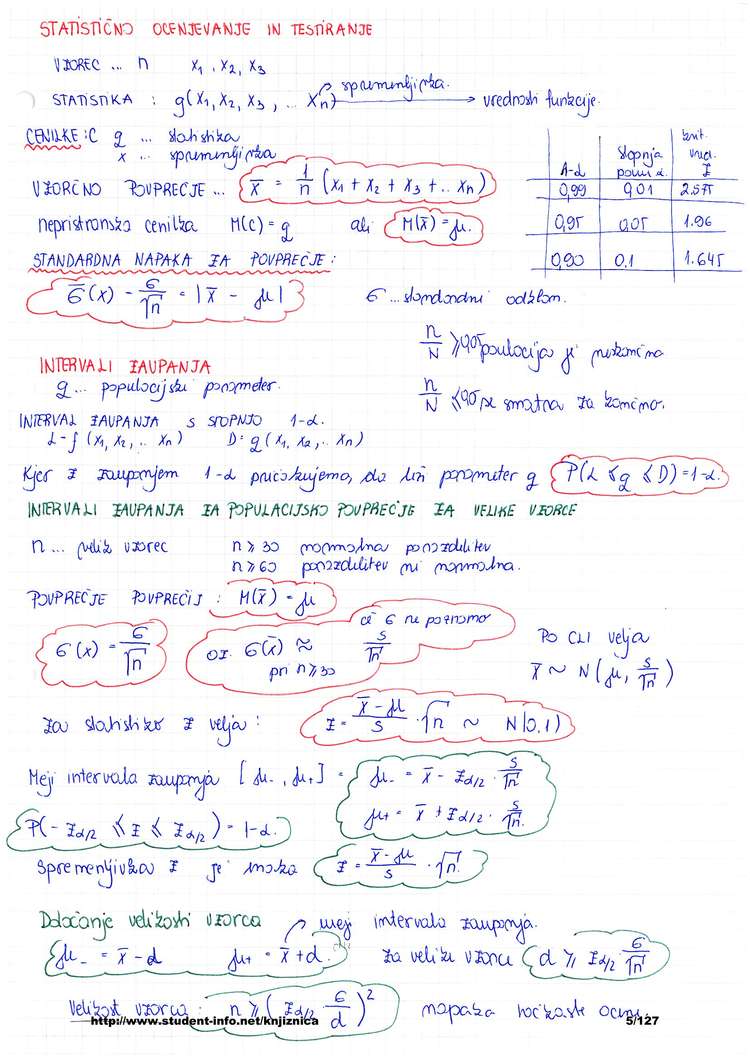 STATISTIČNO OCENJEVANJE IN TESTIRANJE
VZOREC ... n x₁, x₂, x₃
STATISTIKA : g(x₁, x₂, x₃, ... xₙ) spremenljivka. → vrednosti funkcije.
CENILKE : C g ... statistika
x ... spremenljivka
VZORČNO POVPREČJE ... x̄ = 1/n (x₁ + x₂ + x₃ + .. xₙ)
1-α Stopnja krit. vred. z
0,99 0,01 2.575
0,95 0,05 1.96
0,90 0,1 1.645
nepristranska cenilka M(C) = g ali M(x̄) = μ.
STANDARDNA NAPAKA ZA POVPREČJE :
σ̄(x) - σ/√n = |x̄ - μ| σ ... standardni odklon.
n/N ≥ 0,05 populacija je neskončna
INTERVALI ZAUPANJA
g ... populacijski parameter.
n/N ≤ 0,05 se smatra za končno.
INTERVAL ZAUPANJA S STOPNJO 1-α.
L = f(x₁, x₂, .. xₙ) D = g(x₁, x₂, .. xₙ)
Kjer z zaupanjem 1-α pričakujemo, da leži parameter g P(L ≤ g ≤ D) = 1-α.
INTERVALI ZAUPANJA ZA POPULACIJSKO POVPREČJE ZA VELIKE VZORCE
n ... velik vzorec n ≥ 30 normalna porazdelitev
n ≥ 60 porazdelitev ni normalna.
POVPREČJE POVPREČIJ : M(x̄) = μ
σ(x) = σ/√n oz. σ(x̄) ≈ s/√n če σ ne poznamo
pri n ≥ 30
Po CLI velja
x̄ ~ N(μ, s/√n)
Za statistiko z velja : z = x̄-μ/s · √n ~ N(0,1)
Meji intervala zaupanja [μ₋, μ₊] = μ₋ = x̄ - z_α/2 · s/√n
μ₊ = x̄ + z_α/2 · s/√n
P(-z_α/2 ≤ z ≤ z_α/2) = 1-α.
Spremenljivka z je enaka z = x̄-μ/s · √n.
Določanje velikosti vzorca meji intervala zaupanja.
μ₋ = x̄ - d μ₊ = x̄ + d. Za velike vzorce d ≥ z_α/2 σ/√n
Velikost vzorca : n ≥ (z_α/2 σ/d)² napaka točkaste ocene.
http://www.student-info.net/knjiznica 5/127